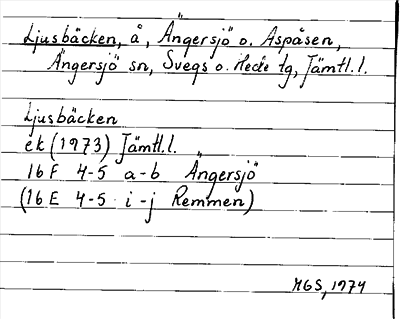 Ljusbäcken, å, Ängersjö o. Aspåsen,
Ängersjö sn, Svegs o. Hede tg, Jämtl. l.
Ljusbäcken
ek (1973) Jämtl. l.
16 F 4-5 a-b Ängersjö
(16 E 4-5 i-j Remmen)
MGS, 1974